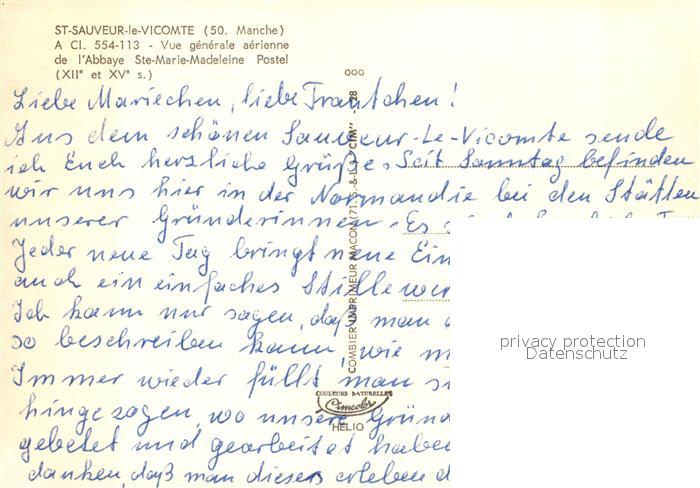 ST-SAUVEUR-le-VICOMTE (50. Manche)
A CI. 554-113 - Vue générale aérienne
de l'Abbaye Ste-Marie-Madeleine Postel
(XIIe et XVe s.)
Liebe Mariechen, liebe Trautchen!
Aus dem schönen Sauveur-Le-Vicomte sende
ich Euch herzliche Grüße. Seit Sonntag befinden
wir uns hier in der Normandie bei den Stätten
unserer Gründerinnen. Es
Jeder neue Tag bringt neue Ein
auch ein einfaches Stille
Ich kann nur sagen, daß man
so beschreiben kann, wie m
Immer wieder fühlt man s
hingezogen, wo unsere Gründ
gebetet und gearbeitet haben
danken, daß man dieses erleben d
COMBIER IMPRIMEUR MACON (71, S.-&-L.) "CIM"
COULEURS NATURELLES
Cimcolor
HELIO
privacy protection
Datenschutz